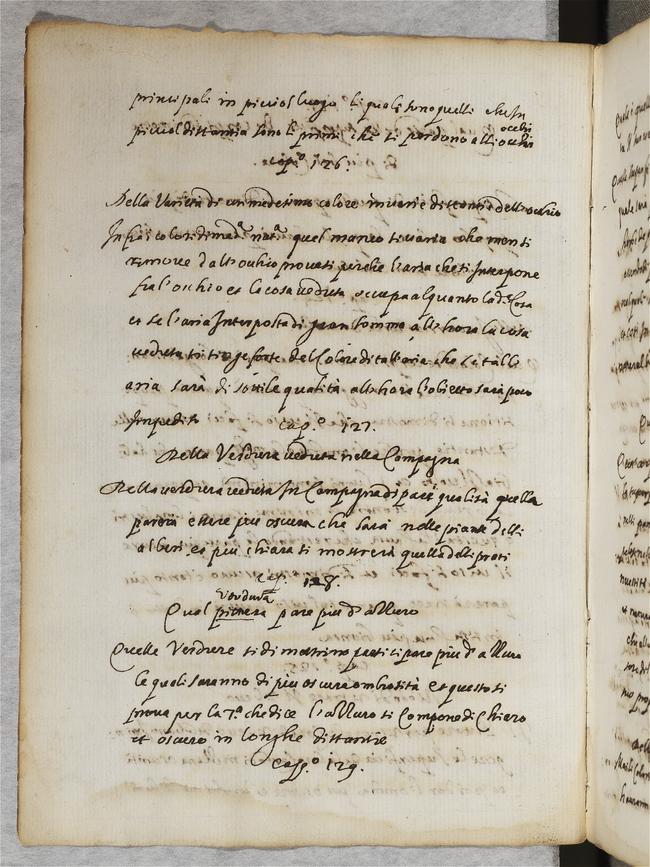 principali in picciol luogo li quali sono quelli che In
picciol distantia sono li primi che si perdono alli occhi
occhi
cap.º 126.
Della Varietà di un medesimo colore in varie distantie dell'occhio
Infra i colori di mad.ª nat.ª quel manco si varia che men si
rimove dall'occhio provasi perche l'aria che si Interpone
fra l'occhio et la cosa veduta occupa alquanto la d.ª Cosa
et se l'aria Interposta di gran somma allhora la cosa
veduta si tinge forte del Colore di tal aria che se tall
aria sarà di sottile qualità allhora l'obietto sarà poco
Impedito cap.º 127.
Della Verdura veduta nella Campagna
Della verdura veduta In Campagna di pari qualità quella
parerà essere più oscura che sarà nelle piante delli
alberi et più chiara si mostrerà quella delli prati
Cap. 128.
verdura
Qual pittura pare piu d'azzurro
Quelle Verdure si dimostrino parti si pare piu d'azzuro
le quali saranno di piu oscura ombrosità et questo si
prova per la 7.ª che dice l'azzuro si Compone di Chiaro
et oscuro in longhe distantie
Capp.º 129.